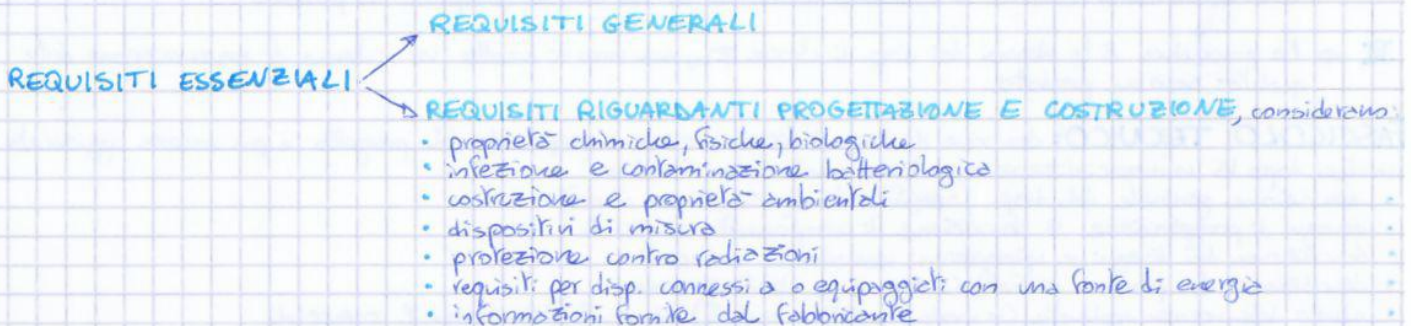 REQUISITI GENERALI
REQUISITI ESSENZIALI
REQUISITI RIGUARDANTI PROGETTAZIONE E COSTRUZIONE, considerano:
• proprietà chimiche, fisiche, biologiche
• infezione e contaminazione batteriologica
• costruzione e proprietà ambientali
• dispositivi di misura
• protezione contro radiazioni
• requisiti per disp. connessi a o equipaggiati con una fonte di energia
• informazioni fornite dal fabbricante